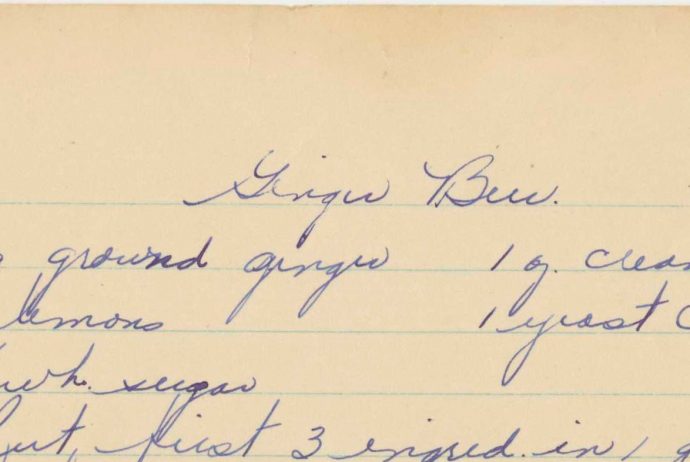 Ginger Beer.
ground ginger 1 oz. crea
lemons 1 yeast c
wh. sugar
Put, first 3 ingred. in 1 g